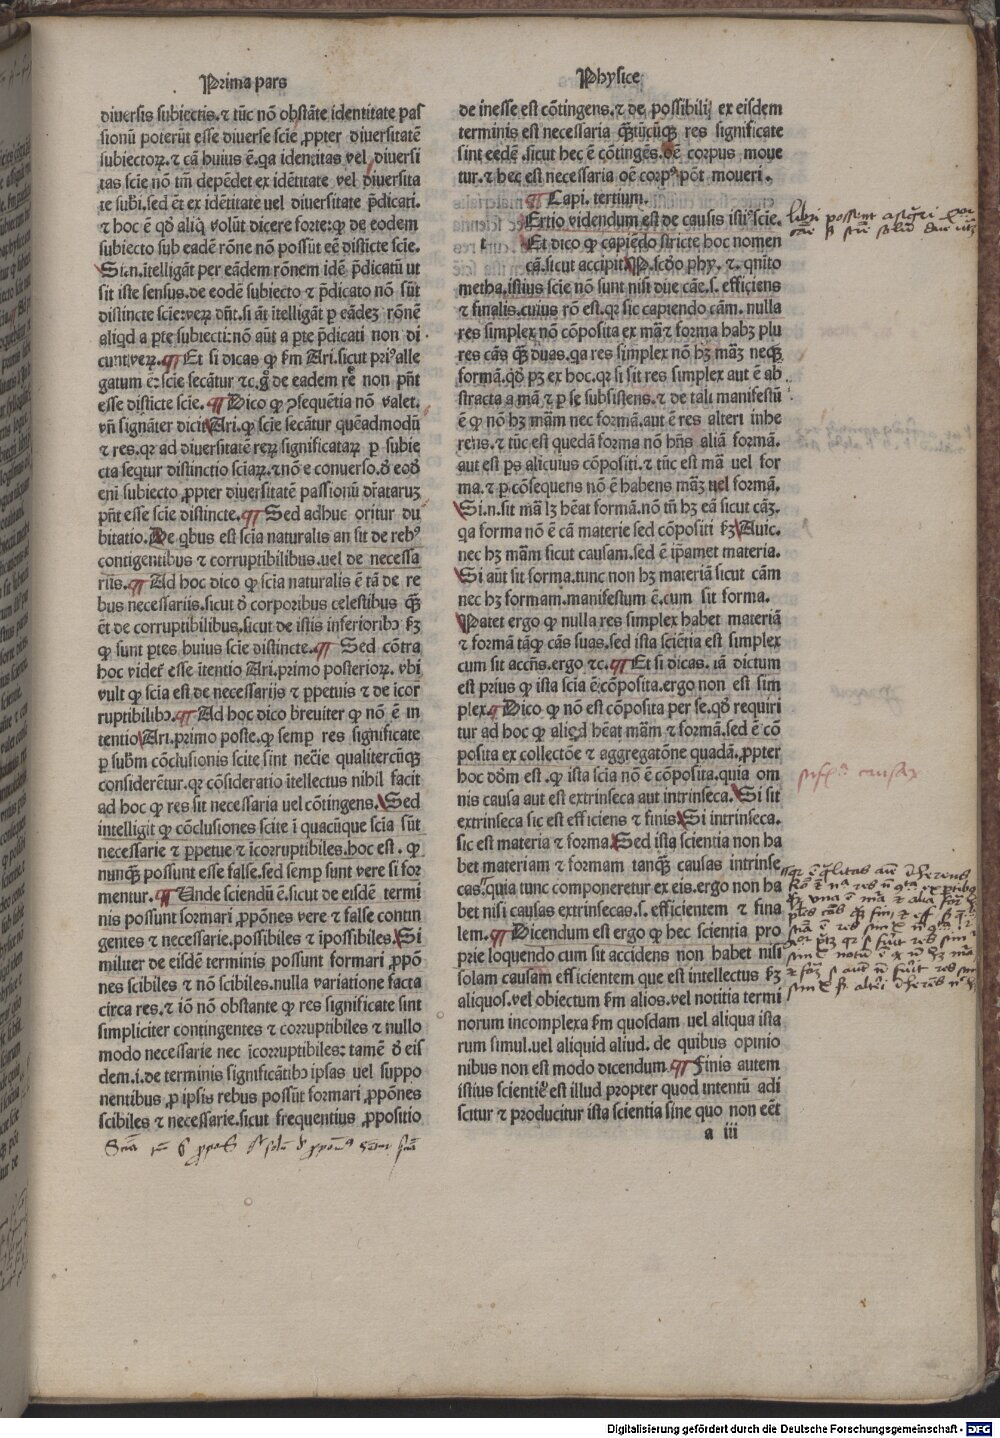 Prima pars
diuersis subiectis.⁊ tūc nō obstāte identitate pas
sionū poterūt esse diuerse scie ꝓpter diuersitatē
subiectoꝝ.⁊ cā huius ē.qa identitas vel diuersi
tas scie nō tm̄ depēdet ex idētitate vel diuersita
te subi.sed ēt ex idētitate uel diuersitate p̄dicati.
⁊ hoc ē qd̄ aliq̄ volūt dicere forte:ꝙ de eodem
subiecto sub eadē rōne nō possūt eē disticte scie.
Si.n.itelligāt per eādem rōnem idē p̄dicatū ut
sit iste sensus.de eodē subiecto ⁊ p̄dicato nō sūt
distincte scie:verꝫ dn̄t.si āt itelligāt ꝑ eādeꝫ rōnē
aliqd a ꝑte subiecti:nō aūt a ꝑte p̄dicati non di
cunt verꝫ.¶ Et si dicas ꝙ ẜm Ari.sicut priꝰ alle
gatum ē:scie secātur ⁊c.g̊ de eadem rē non pn̄t
esse disticte scie.¶ Dico ꝙ ꝯsequētia nō valet.
vn̄ signāter dicit Ari.ꝙ scie secātur quēadmodū
⁊ res.qr ad diuersitatē reꝝ significataꝝ ꝑ subie
cta seqtur distinctio sciaꝝ.⁊ nō e conuerso.ꝺ̊ eoꝺ̊
eni subiecto ꝓpter diuersitatē passionū dr̄ataruꝫ
pn̄t esse scie distincte.¶ Sed adhuc oritur du
bitatio.De qbus est scia naturalis an sit de rebꝰ
contigentibus ⁊ corruptibilibus.uel de necessa
riis.¶ Ad hoc dico ꝙ scia naturalis ē tā de re
bus necessariis.sicut ꝺ̊ corporibus celestibus qꝫ̄
ēt de corruptibilibus.sicut de istis inferioribꝰ ẜꝫ
ꝙ sunt ptes huius scie distincte.¶ Sed cōtra
hoc videt̄ esse itentio Ari.primo posterioꝝ. vbi
vult ꝙ scia est de necessarijs ⁊ ꝑpetuis ⁊ de icor
ruptibilibꝰ.¶ Ad hoc dico breuiter ꝙ nō ē in
tentio Ari.primo poste.ꝙ semꝑ res significate
ꝑ subm̄ cōclusionis scite sint necīe qualitercūqꝫ
considerētur.qr cōsideratio itellectus nihil facit
ad hoc ꝙ res sit necessaria uel cōtingens.Sed
intelligit ꝙ cōclusiones scite ī quacūque scia sūt
necessarie ⁊ ꝑpetue ⁊ īcorruptibiles.hoc est. ꝙ
nunqꝫ̄ possunt esse false.sed semꝑ sunt vere si for
mentur.¶ Unde sciendū ē.sicut de eisdē termi
nis possunt formari ꝓpōnes vere ⁊ false contin
gentes ⁊ necessarie.possibiles ⁊ ipossibiles.Si
militer de eisdē terminis possunt formari ꝓpō
nes scibiles ⁊ nō scibiles.nulla variatione facta
circa res.⁊ iō nō obstante ꝙ res significate sint
simpliciter contingentes ⁊ corruptibiles ⁊ nullo
modo necessarie nec īcorruptibiles: tamē ꝺ̊ eis
dem.i.de terminis significātibꝰ ipsas uel suppo
nentibus ꝓ ipsis rebus possūt formari ꝓpōnes
scibiles ⁊ necessarie.sicut frequentius ꝓpositio
Physice
de inesse est cōtingens.⁊ de possibili ex eisdem
terminis est necessaria qꝫ̄tūcūqꝫ res significate
sint eedē.sicut hec ē cōtingēs.oē corpus moue
tur.⁊ hec est necessaria oē corpꝰ pōt moueri.
¶ Capi. tertium.
t
Ertio videndum est de causis istiꝰ scie.
Et dico ꝙ capiēdo stricte hoc nomen
cā.sicut accipit P.scdo phy. ⁊. qnito
metha.istius scie nō sunt nisi due cāe.s. efficiens
⁊ finalis.cuius rō est.qr sic capiendo cām. nulla
res simplex nō cōposita ex mā ⁊ forma habꝫ plu
res cās qꝫ̄ duas.qa res simplex nō hꝫ māꝫ neqꝫ
formā.qd̄ pꝫ ex hoc.qr si sit res simplex aut ē ab
stracta a mā ⁊ ꝑ se subsistens.⁊ de tali manifestū
ē ꝙ nō hꝫ mām nec formā.aut ē res alteri inhe
rens.⁊ tūc est quedā forma nō hn̄s aliā formā.
aut est ps alicuius cōpositi.⁊ tūc est mā uel for
ma.⁊ ꝑ cōsequens nō ē habens māꝫ uel formā.
Si.n.sit mā lꝫ hēat formā.nō tn̄ hꝫ eā sicut cāꝫ.
qa forma nō ē cā materie sed cōpositi ẜꝫ Auic.
nec hꝫ mām sicut causam.sed ē ip̄amet materia.
Si aūt sit forma.tunc non hꝫ materiā sicut cām
nec hꝫ formam.manifestum ē.cum sit forma.
Patet ergo ꝙ nulla res simplex habet materiā
⁊ formā tāqꝫ cās suas.sed ista sciētia est simplex
cum sit accn̄s.ergo ⁊c.¶ Et si dicas. iā dictum
est prius ꝙ ista scia ē cōposita.ergo non est sim
plex.¶ Dico ꝙ nō est cōposita per se.qd̄ requiri
tur ad hoc ꝙ aliqd hēat mām ⁊ formā.sed ē cō
posita ex collectōe ⁊ aggregatōne quadā.ꝓpter
hoc dōm est.ꝙ ista scia nō ē cōposita.quia om
nis causa aut est extrinseca aut intrinseca.Si sit
extrinseca sic est efficiens ⁊ finis.Si intrinseca.
sic est materia ⁊ forma.Sed ista scientia non ha
bet materiam ⁊ formam tanqꝫ̄ causas intrinse
cas.quia tunc componeretur ex eis.ergo non ha
bet nisi causas extrinsecas.s. efficientem ⁊ fina
lem.¶ Dicendum est ergo ꝙ hec scientia pro
prie loquendo cum sit accidens non habet nisi
solam causam efficientem que est intellectus ẜꝫ
aliquos.vel obiectum ẜm alios.vel notitia termi
norum incomplexa ẜm quosdam uel aliqua ista
rum simul.uel aliquid aliud. de quibus opinio
nibus non est modo dicendum.¶ Finis autem
istius scientie est illud propter quod intentū adi
scitur ⁊ producitur ista scientia sine quo non eēt
a iii
Digitalisierung gefördert durch die Deutsche Forschungsgemeinschaft - DFG